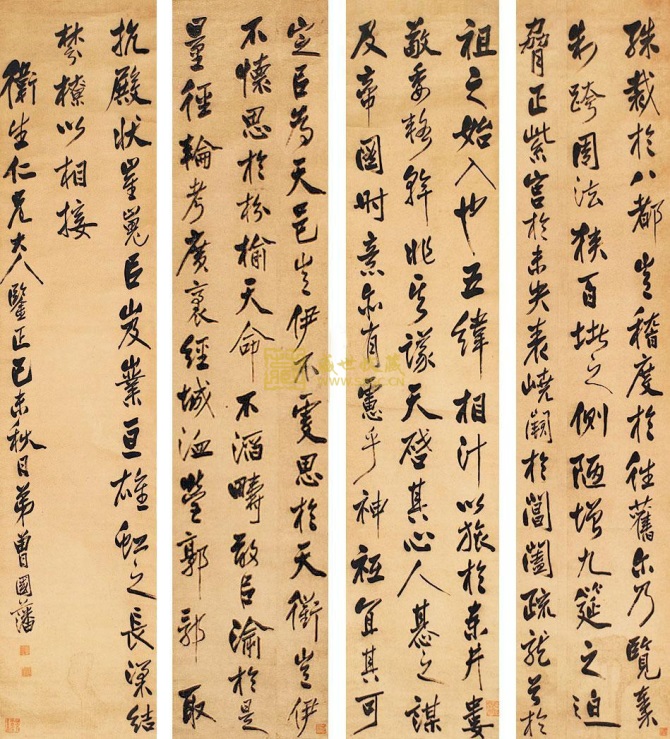 殊裁於八都豈稽度於往舊尔乃覽秦
制跨周法狹百堵之側陋增九筵之迫
脅正紫宫於未央表嶢闕於閶闔疏龍首於
祖之始入也五緯相汁以旅於東井婁
敬委輅幹非其議天啓其心人惎之謀
及帝圖时意亦有慮乎神祇宜其可
定以為天邑豈伊不虔思於天衢豈伊
不懷思於枌榆天命不滔疇敢以渝於是
量徑輪考廣袤經城洫營郭郛取
抗殿狀崔嵬以岌嶪亘雄虹之長梁結
棼橑以相接
衛生仁兄大人鑒正己未秋日弟曾國藩
盛世收藏